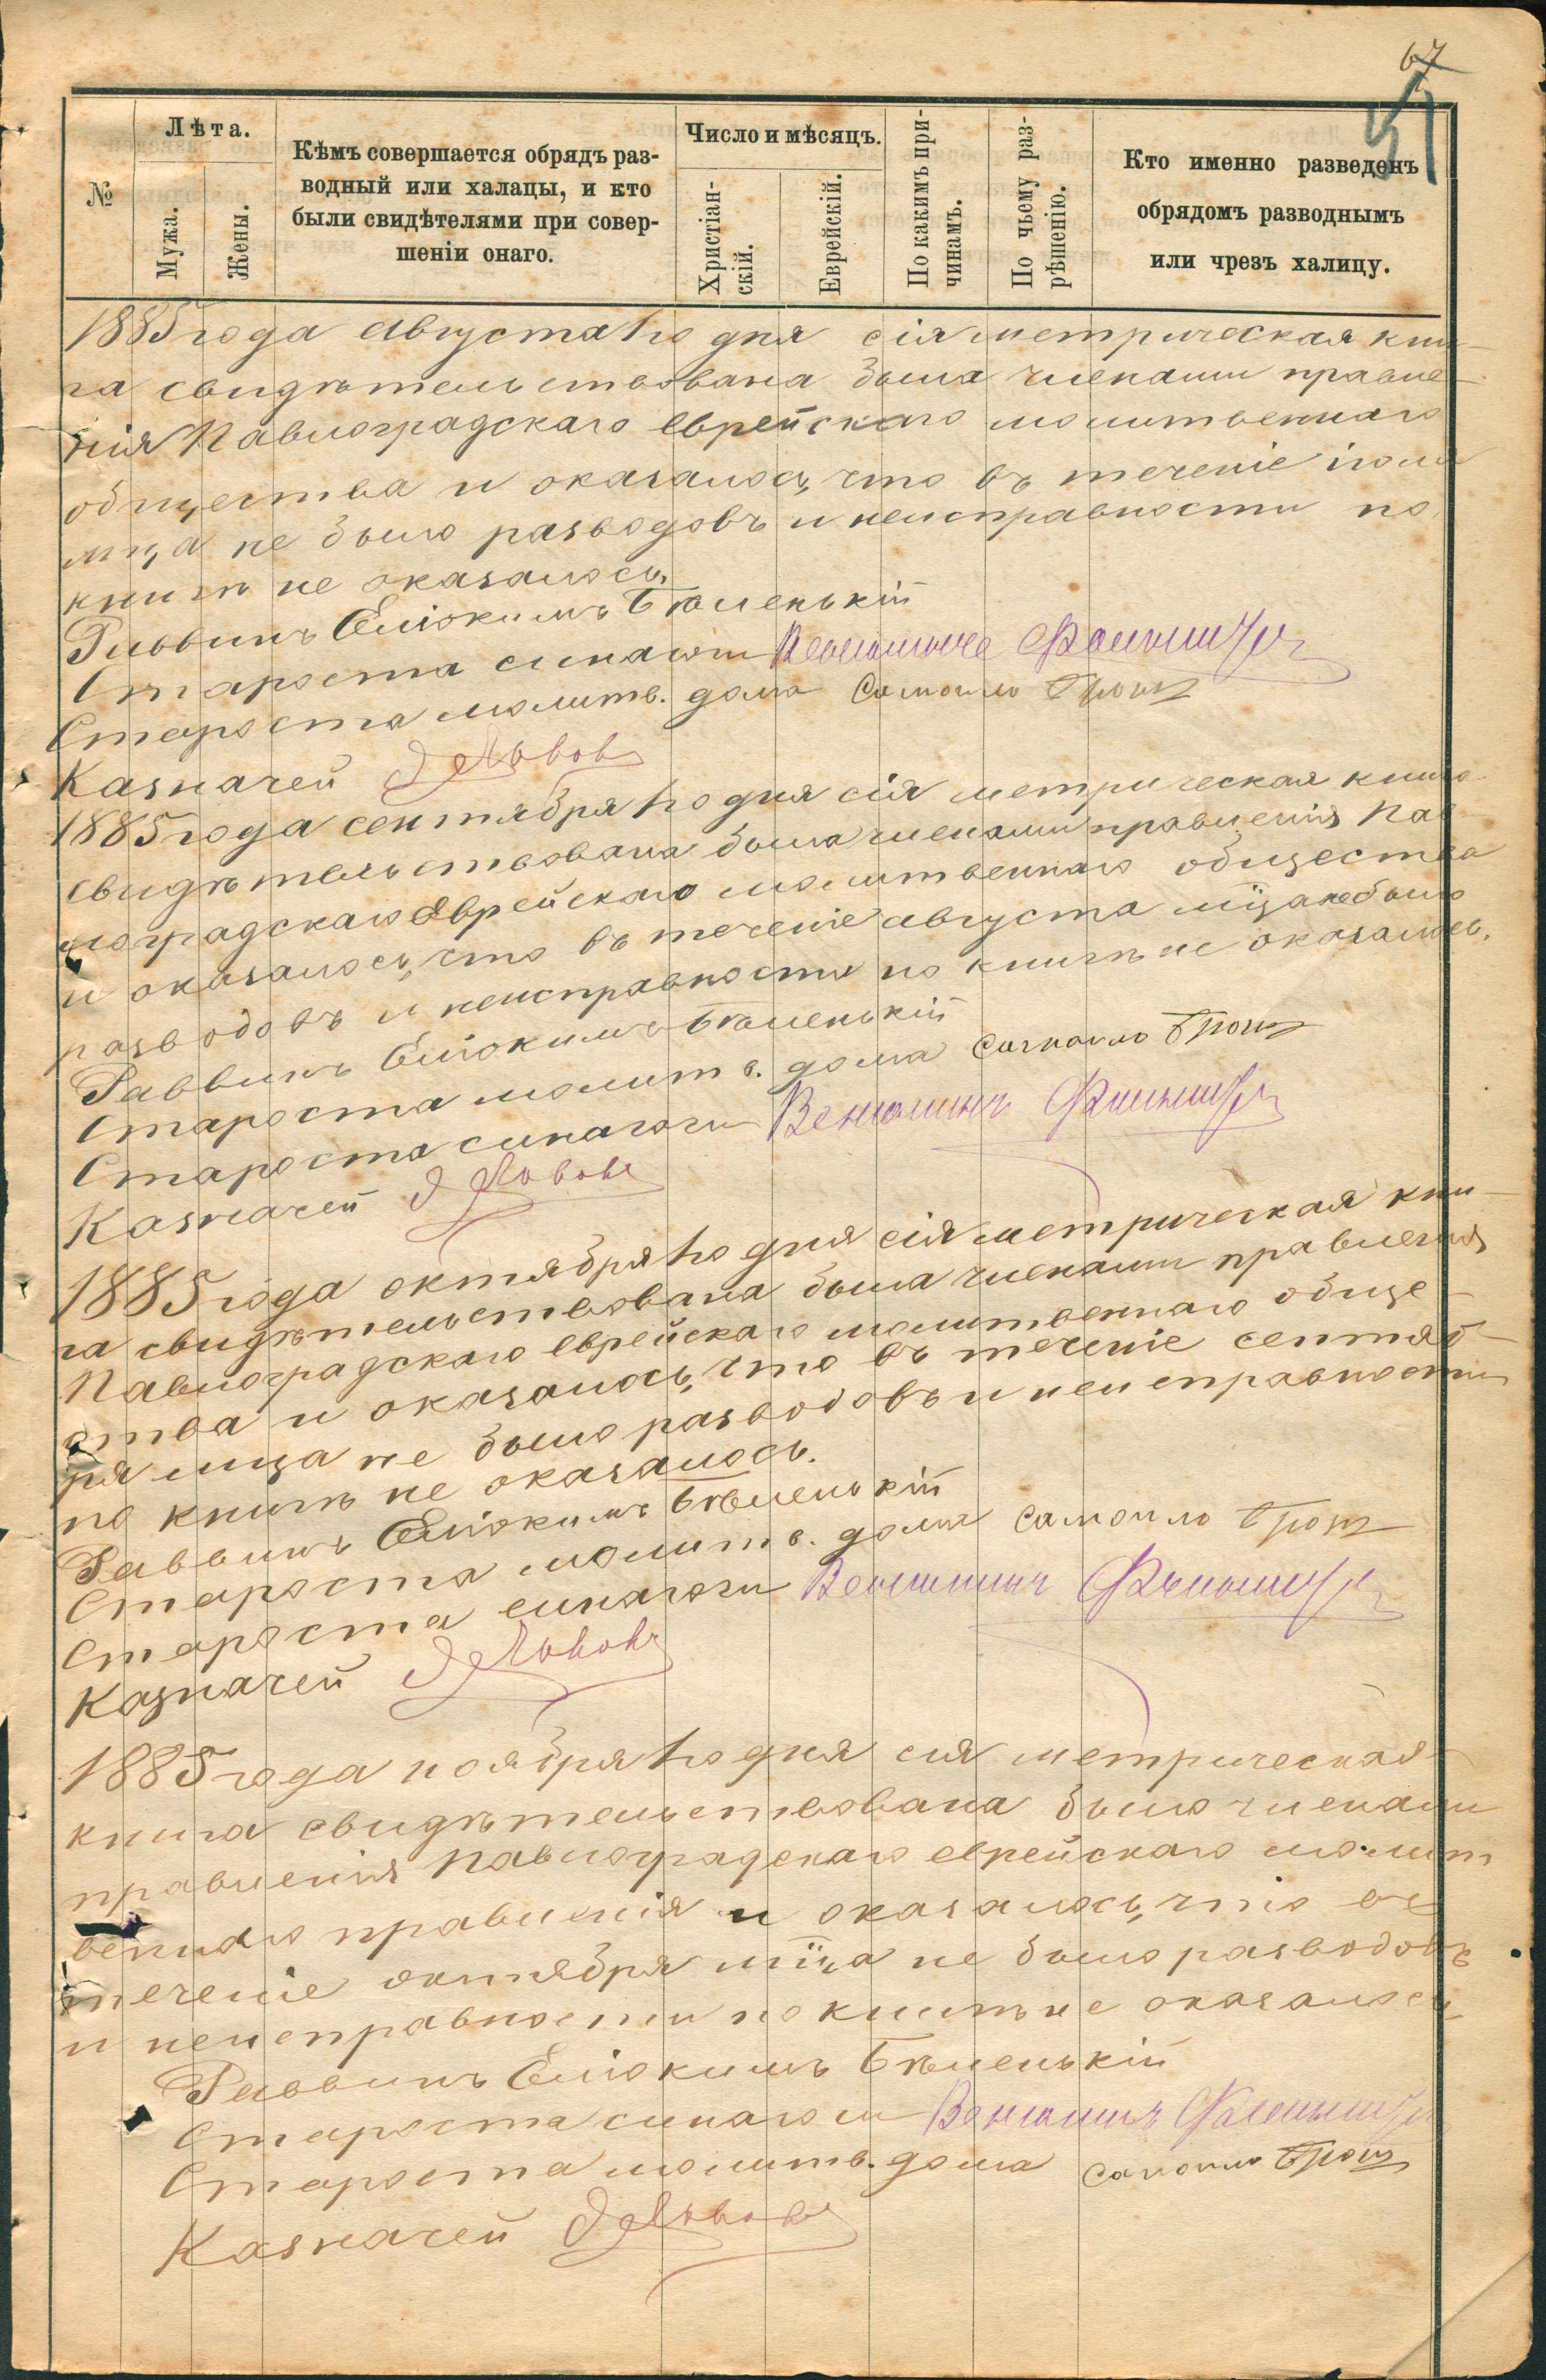 67
51
№
Лѣта.
Мужа.
Жены.
Кѣмъ совершается обрядъ раз-
водный или халацы, и кто
были свидѣтелями при совер-
шеніи онаго.
Число и мѣсяцъ.
Христіан-
скій.
Еврейскій.
По какимъ при-
чинамъ.
По чьему раз-
рѣшенію.
Кто именно разведенъ
обрядомъ разводнымъ
или чрезъ халицу.
1885 года августа 1го дня сія метрическая кни-
га свидѣтельствована была членами правле-
нія Павлоградскаго еврейскаго молитвеннаго
общества и оказалось, что въ теченіе іюля
мца не было разводовъ и неисправности по
книгѣ не оказалось.
Раввинъ Еліокимъ Бѣленькій
Староста синагоги
Староста молитв. дома
Казначей Львовъ
1885 года сентября 1го дня сія метрическая книга
свидѣтельствована была членами правленія Пав-
лоградскаго еврейскаго молитвеннаго общества
и оказалось, что въ теченіе августа мца не было
разводовъ и неисправности по книгѣ не оказалось.
Раввинъ Еліокимъ Бѣленькій
Староста молитв. дома
Староста синагоги Веніаминъ
Казначей Львовъ
1885 года октября 1го дня сія метрическая кни-
га свидѣтельствована была членами правленія
Павлоградскаго еврейскаго молитвеннаго обще-
ства и оказалось, что въ теченіе сентяб-
ря мца не было разводовъ и неисправности
по книгѣ не оказалось.
Раввинъ Еліокимъ Бѣленькій
Староста молитв. дома
Староста синагоги
Казначей Львовъ
1885 года ноября 1го дня сія метрическая
книга свидѣтельствована была членами
правленія Павлоградскаго еврейскаго молит
веннаго правленія и оказалось, что въ
теченіе октября мца не было разводовъ
и неисправности по книгѣ не оказалось
Раввинъ Еліокимъ Бѣленькій
Староста синагоги Веніаминъ
Староста молитв. дома
Казначей Львовъ